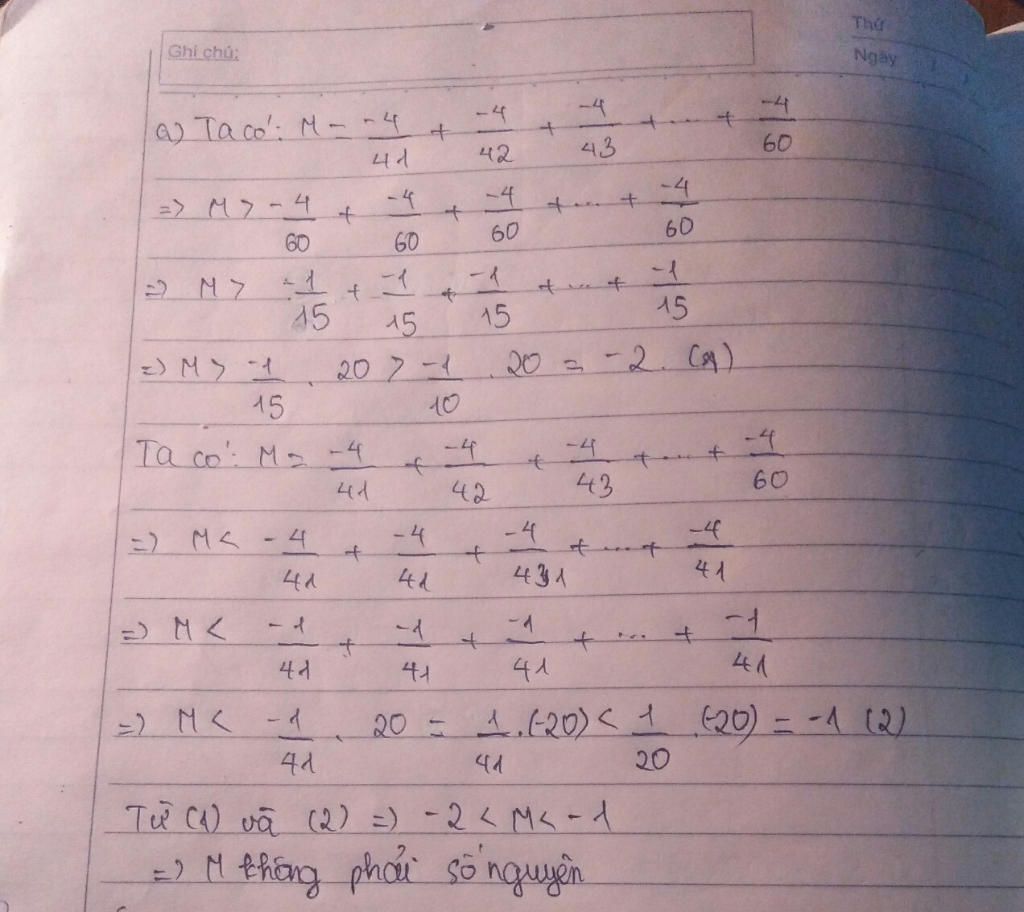 Ghi chú:
Thứ
Ngày
a) Ta có: M = -4/41 + -4/42 + -4/43 + ... + -4/60
=> M > -4/60 + -4/60 + -4/60 + ... + -4/60
=> M > -1/15 + -1/15 + -1/15 + ... + -1/15
=> M > -1/15 . 20 > -1/10 . 20 = -2. (1)
Ta có: M = -4/41 + -4/42 + -4/43 + ... + -4/60
=> M < -4/41 + -4/41 + -4/41 + ... + -4/41
=> M < -1/41 + -1/41 + -1/41 + ... + -1/41
=> M < -1/41 . 20 = 1/41 . (-20) < 1/20 . (-20) = -1 (2)
Từ (1) và (2) => -2 < M < -1
=> M không phải số nguyên